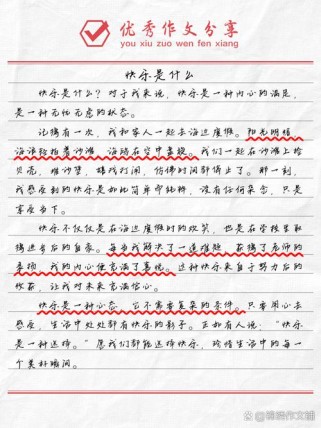 优秀作文分享
you xiu zuo wen fen xiang
快乐是什么
快乐是什么?对于我来说,快乐是一种内心的满足,
是一种无忧无虑的状态。
记得有一次,我和家人一起去海边度假。阳光明媚,
海浪轻拍着沙滩,海鸥在空中盘旋。我们一起在沙滩上捡
贝壳,堆沙堡,嬉戏打闹,仿佛时间都停止了。那一刻,
我感受到的快乐是如此简单而纯粹,没有任何杂念,只是
享受当下。
快乐不仅仅是在海边度假时的欢笑,也是在学校里取
得进步后的自豪。每当我解决了一道难题,获得了老师的
表扬,我的内心便充满了喜悦。这种快乐来自于努力后的
收获,让我对未来充满信心。
快乐是一种心态,它不需要复杂的条件。只要用心去
感受,生活中处处都有快乐的影子。正如有人说:“快乐
是一种选择。”愿我们都能选择快乐,珍惜生活中的每一
个美好瞬间。